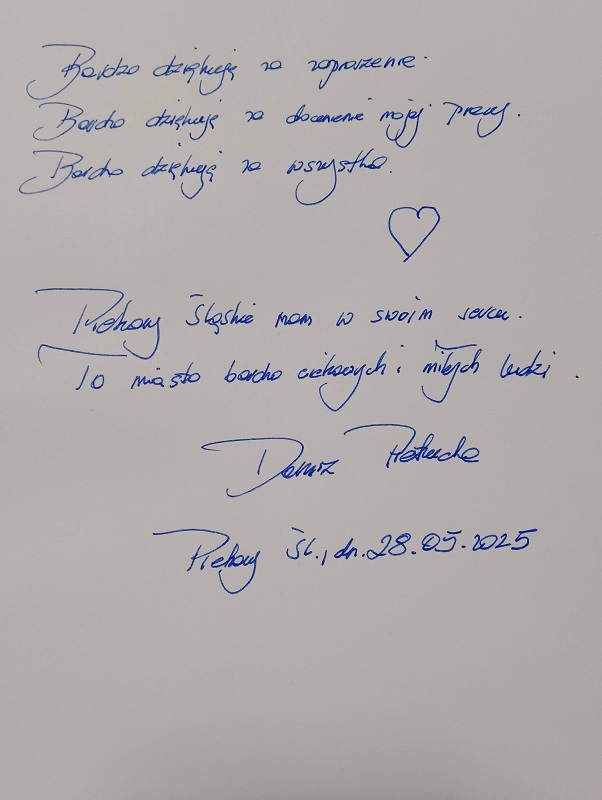 Bardzo dziękuję za zaproszenie.
Bardzo dziękuję za docenienie mojej pracy.
Bardzo dziękuję za wszystko.
Piekary Śląskie mam w swoim sercu.
To miasto bardzo ciekawych i miłych ludzi.
Dariusz
Piekary Śl., dn. 28.05.2025